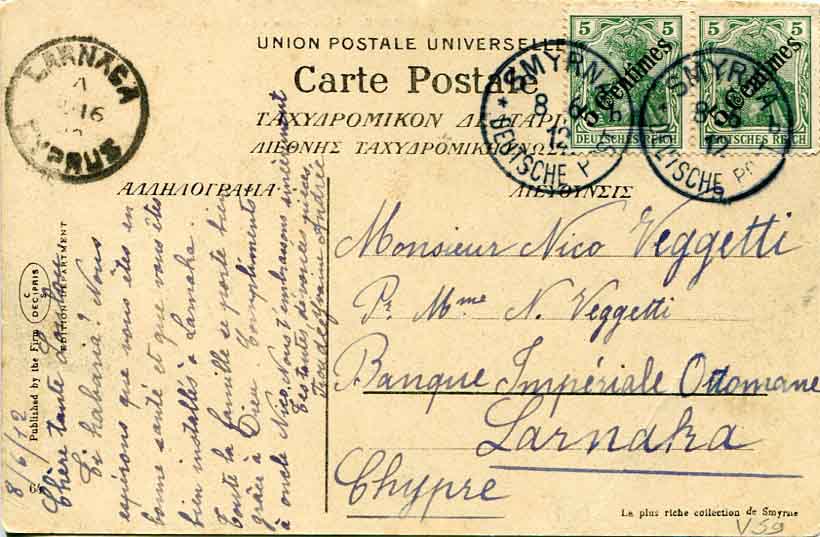 UNION POSTALE UNIVERSELLE
Carte Postale
ΤΑΧΥΔΡΟΜΙΚΟΝ ΔΕΛΤΑΡΙ
ΔΙΕΘΝΗΣ ΤΑΧΥΔΡΟΜΙΚΗ ΩΣΙΣ
ΑΛΛΗΛΟΓΡΑΦΙΑ
ΔΙΕΥΘΥΝΣΙΣ
LARNACA
A
16
CYPRUS
5 5
5 Centimes
DEUTSCHES REICH
5 5
5 Centimes
DEUTSCHES REICH
* SMYRNA
8 6
12
b
DEUTSCHE P
* SMYRNA
8 6
12
b
DEUTSCHE PO
8/6/12
Chère tante Loulou
Ti habaria? Nous
espérons que vous êtes en
bonne santé et que vous êtes
bien installés à Larnaka.
Toute la famille se porte bien
grâce à Dieu. Compliments
à oncle Nico. Nous t'embrassons sincèrement
Tes toutes dévouées nièces,
Andrée
Monsieur Nico Veggetti
Pr. Mme N. Veggetti
Banque Impériale Ottomane
Larnaka
Chypre
Published by the Firm DECIPRIS
EDITION DEPARTMENT
64
La plus riche collection de Smyrne
V59